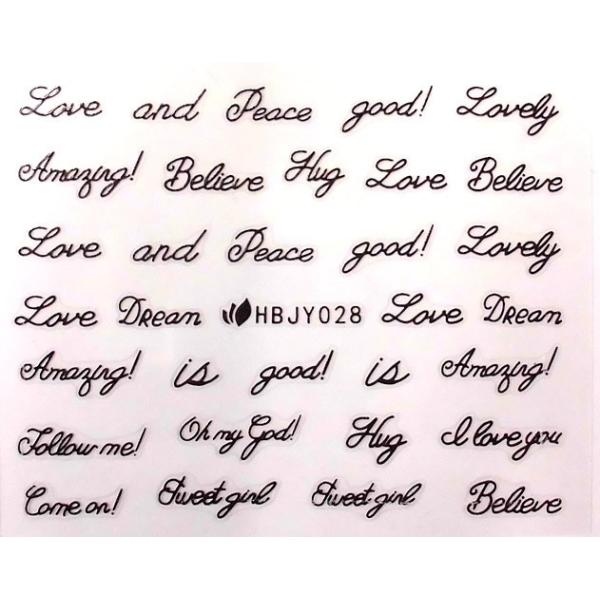 Love and Peace good! Lovely
Amazing! Believe Hug Love Believe
Love and Peace good! Lovely
Love Dream HBJY028 Love Dream
Amazing! is good! is Amazing!
Follow me! Oh my God! Hug I love you
Come on! Sweet girl Sweet girl Believe